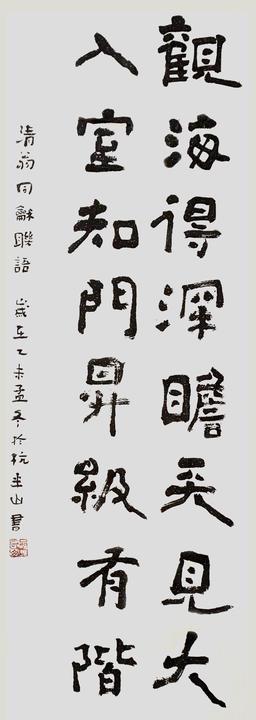 觀海得深瞻天見大
入室知門昇級有階
清翁同龢聯語 歲在乙未孟冬於杭 生山書